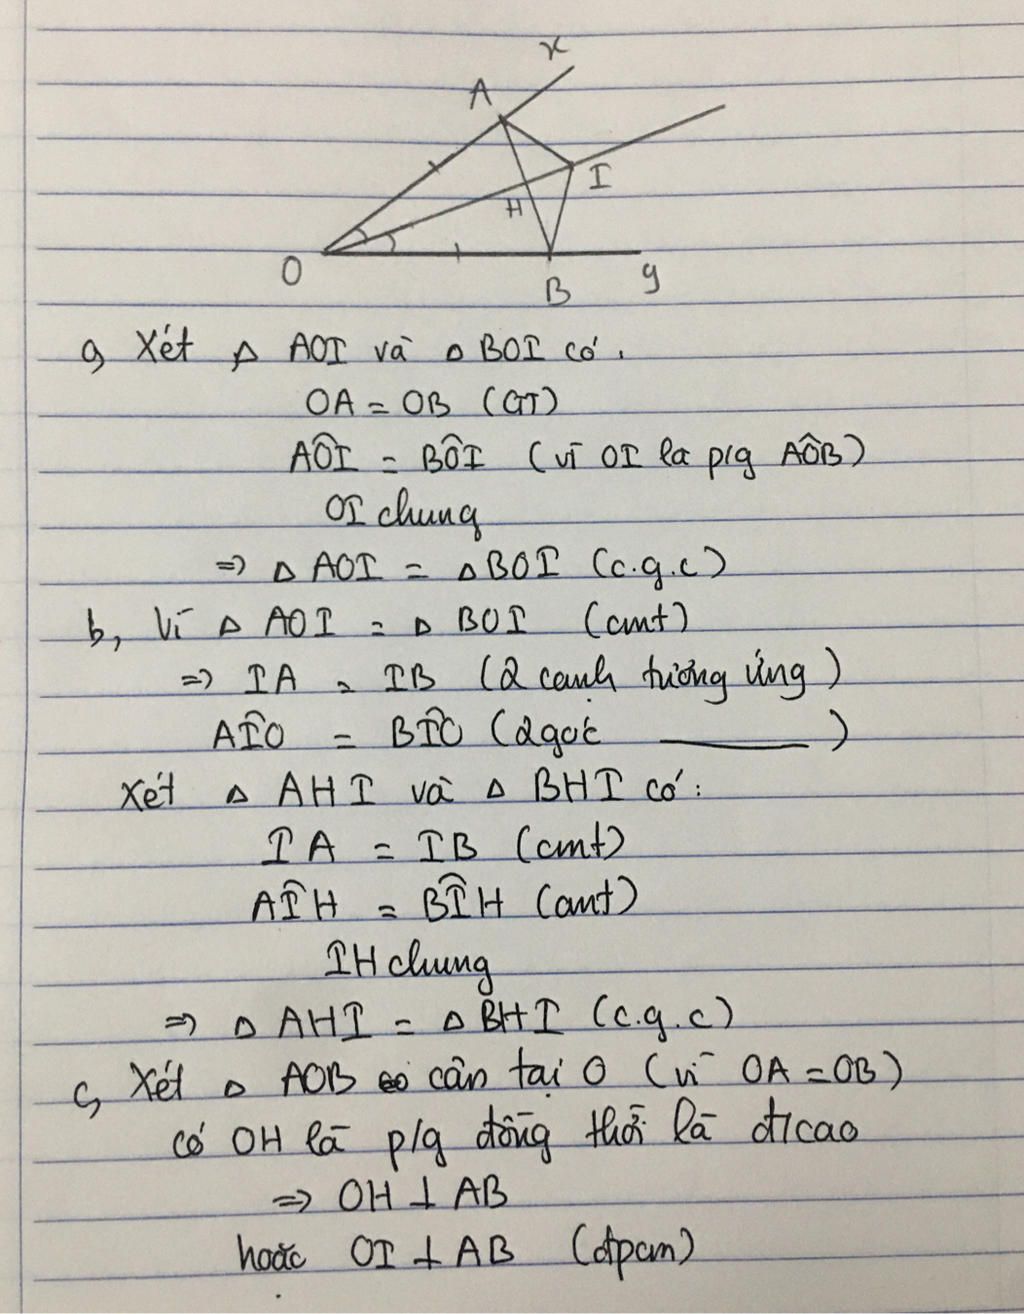 x
A
I
H
O
B
y
a, Xét △ AOI và △ BOI có.
OA = OB (GT)
AÔI = BÔI (vì OI là p/g AÔB)
OI chung
=> △ AOI = △ BOI (c.g.c)
b, Vì △ AOI = △ BOI (cmt)
=> IA = IB (2 cạnh tương ứng)
AÎO = BÎO (2 góc ———)
Xét △ AHI và △ BHI có:
IA = IB (cmt)
AÎH = BÎH (cmt)
IH chung
=> △ AHI = △ BHI (c.g.c)
c, Xét △ AOB cân tại O (vì OA = OB)
có OH là p/g đồng thời là đ/cao
=> OH ⊥ AB
hoặc OI ⊥ AB (đpcm)